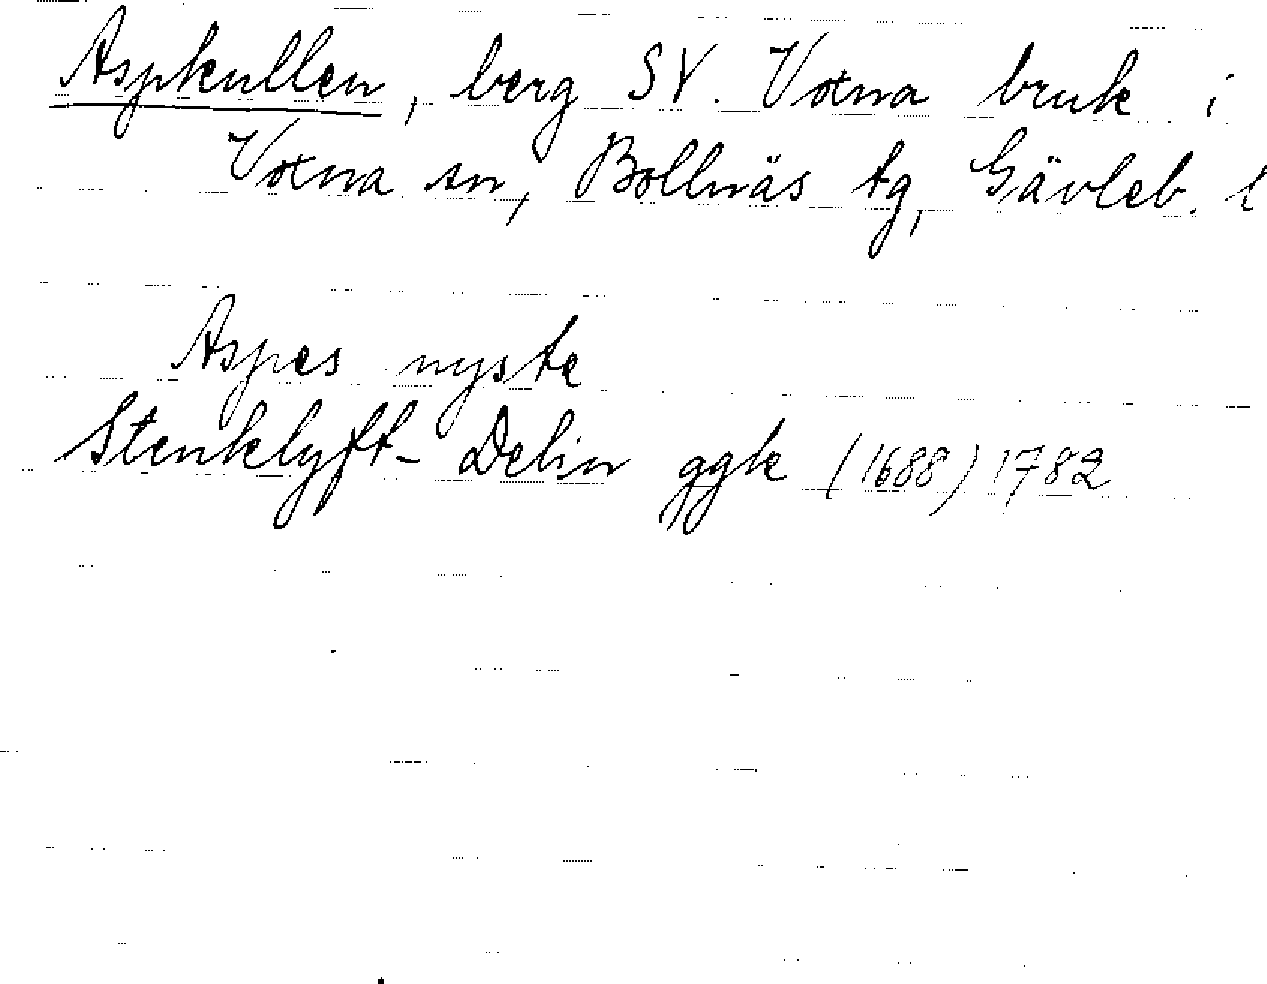 Aspkullen, berg SV. Voxna bruk i
Voxna sn, Bollnäs tg, Gävleb. l
Aspes nyste
Stenklyft- Delin ggk (1688) 1782